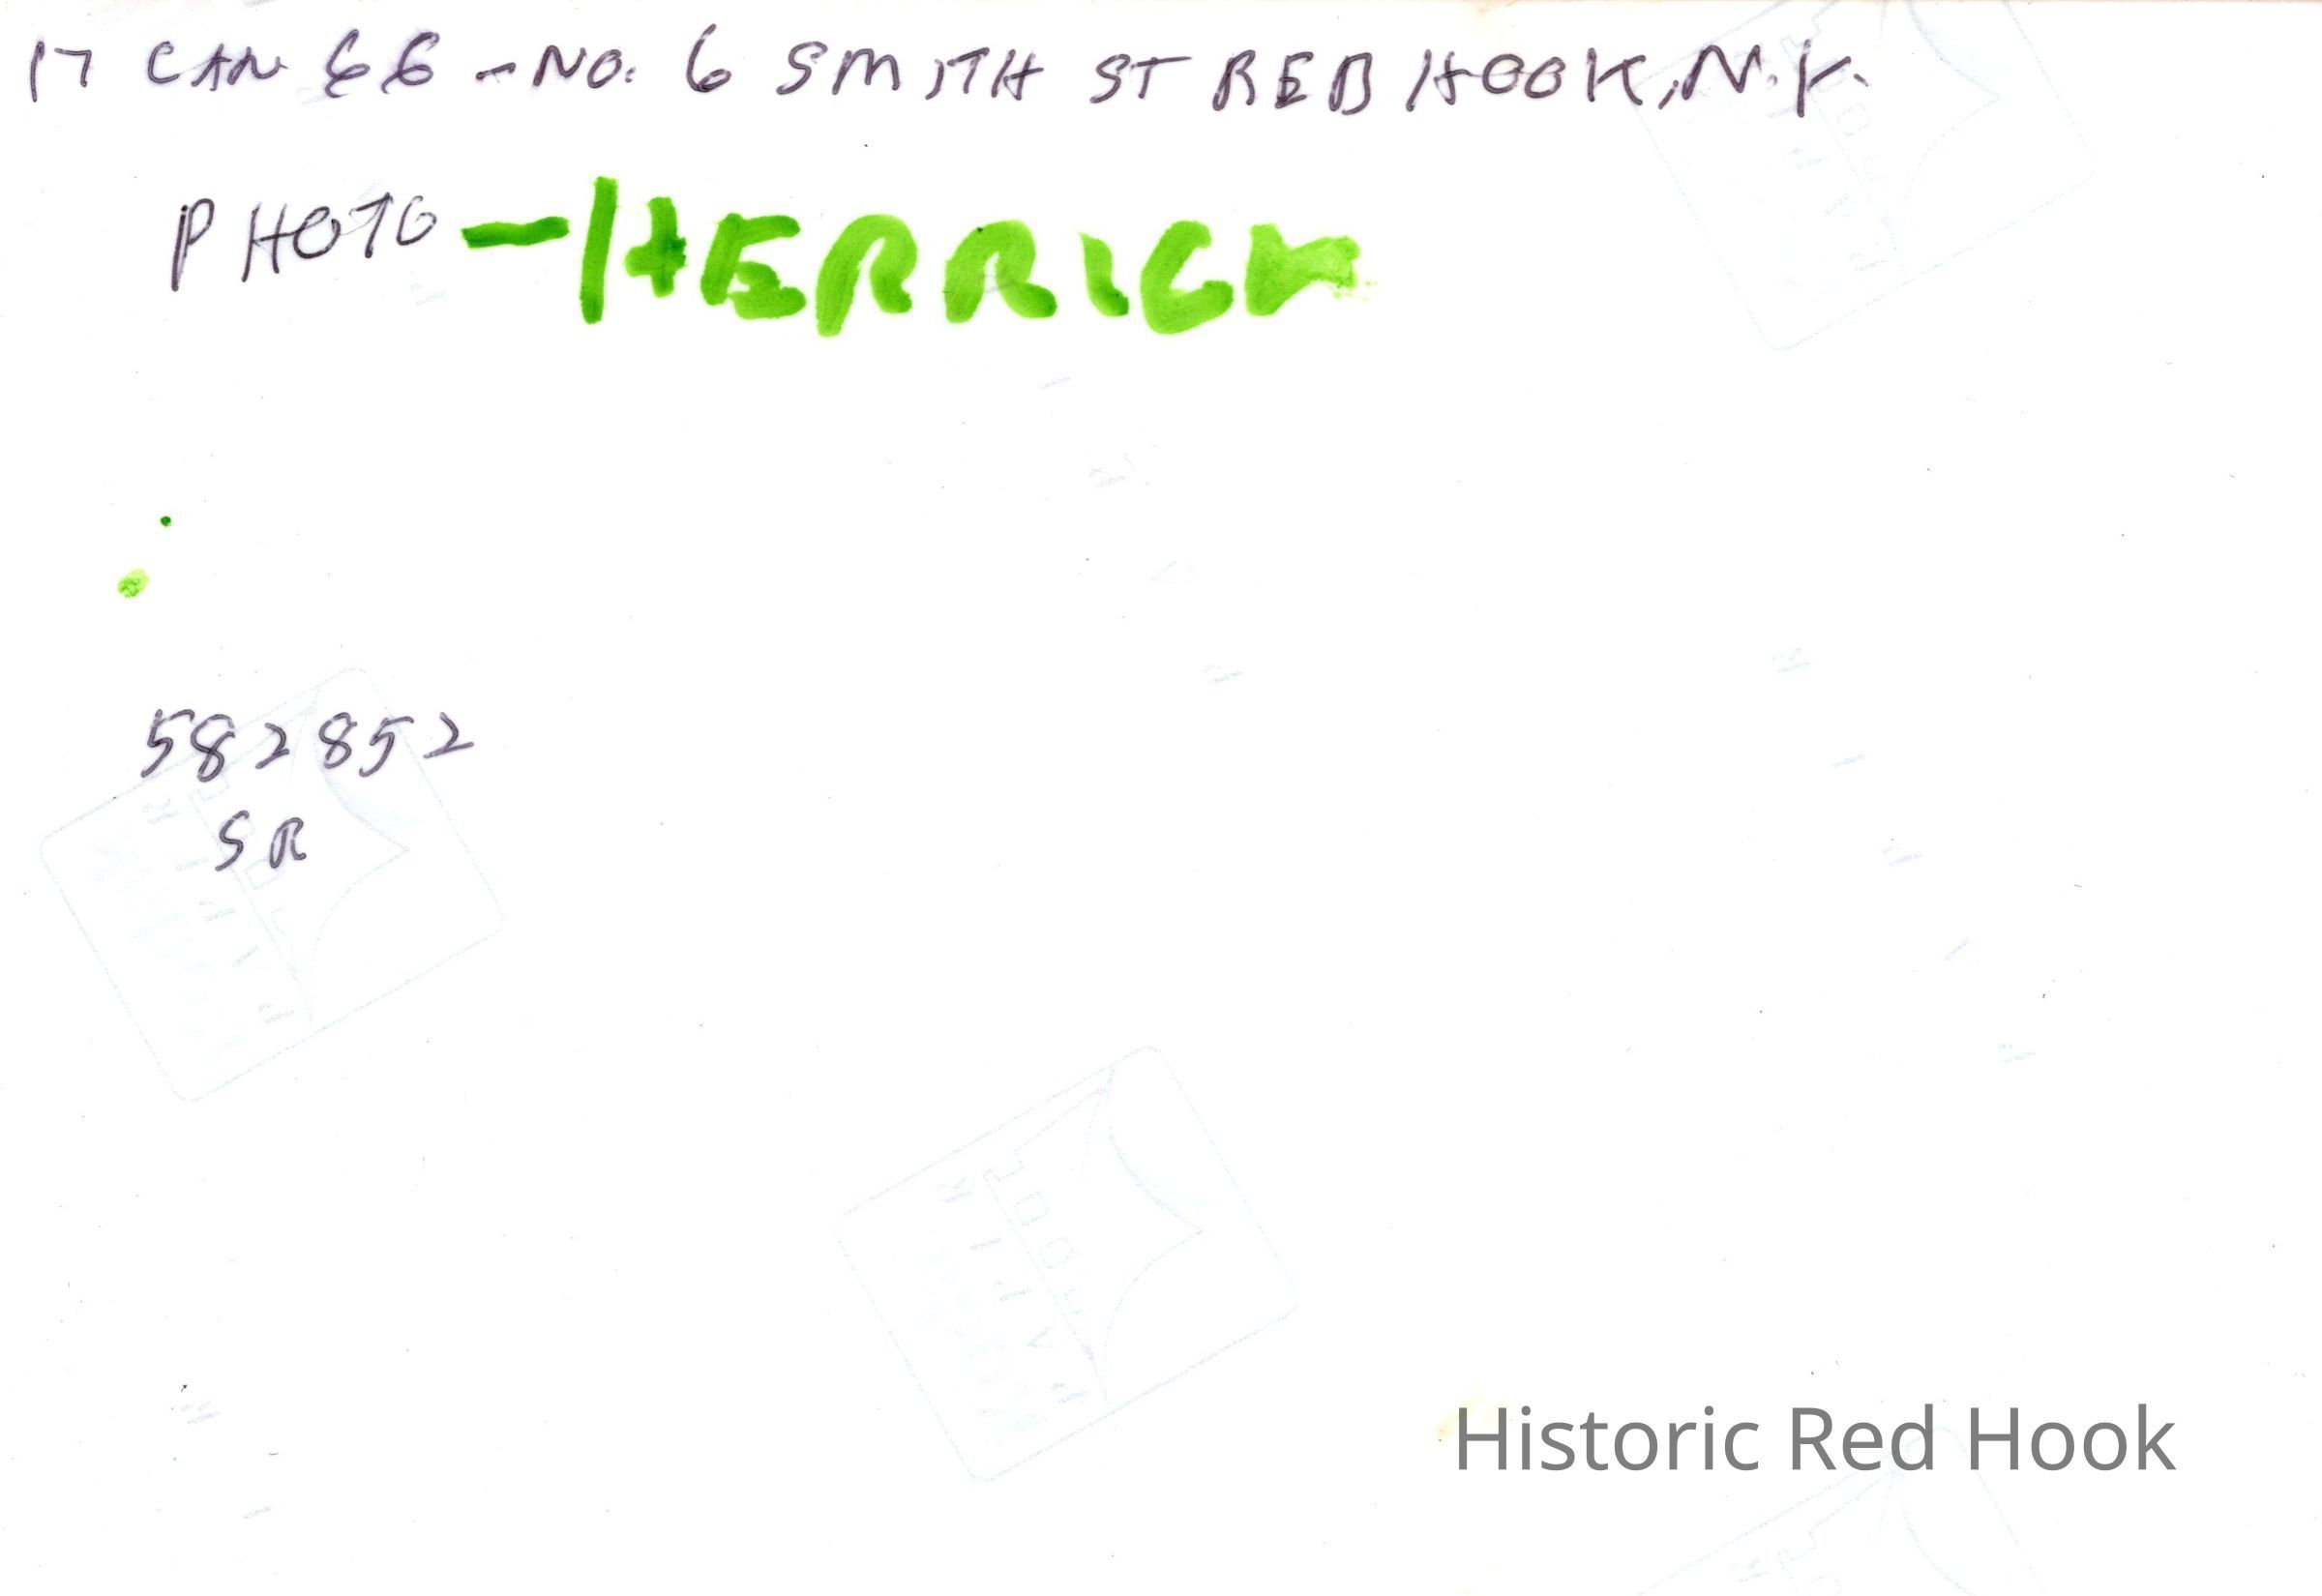 17 CAN 66 - NO. 6 SMITH ST RED HOOK, N.Y.
PHOTO - HERRICK
582852
SR
Historic Red Hook